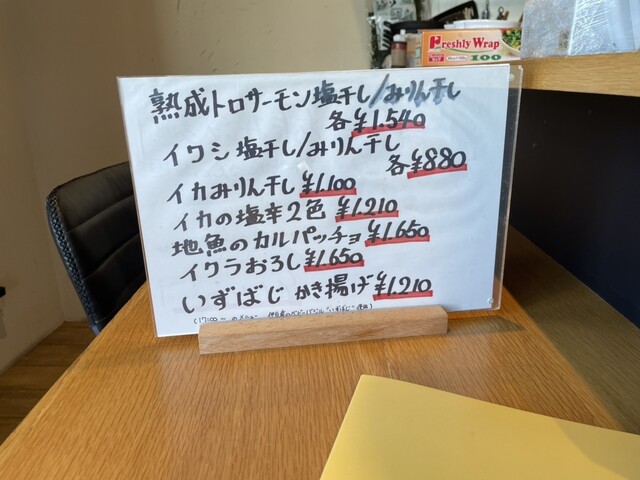 Freshly Wrap
100
熟成トロサーモン塩干し/みりん干し
各¥1.540
イワシ塩干し/みりん干し
各¥880
イカみりん干し¥1.100
イカの塩辛2色 ¥1.210
地魚のカルパッチョ¥1.650
イクラおろし¥1.650
いずばじ かき揚げ¥1.210